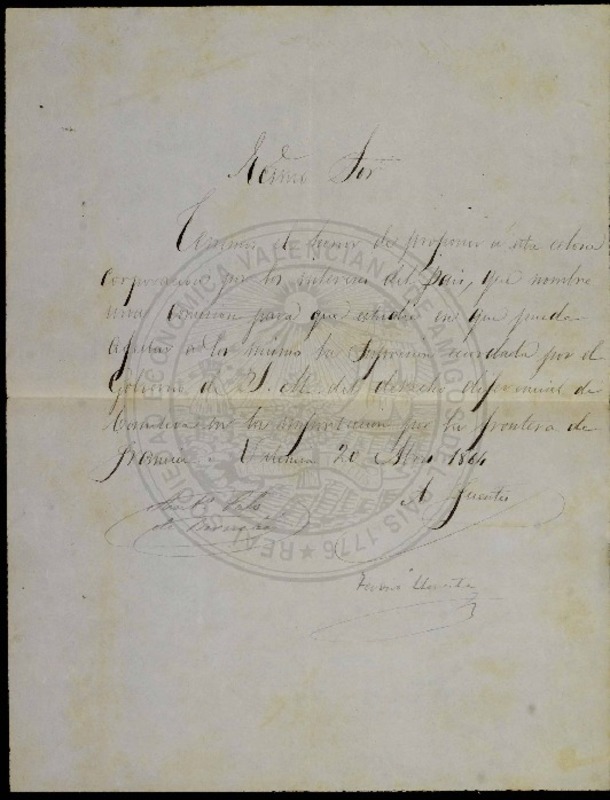 Excmo Sor
Tenemos el honor de proponer a esta celosa
Corporacion por los intereses del pais, que nombre
una Comision para que estudie en que puede
afectar a los mismos la supresion acordada por el
Gobierno de S. M. del derecho diferencial de
bandera en la importacion por la frontera de
Francia. Valencia 20 1864
A Fuentes
REAL SOCIEDAD ECONOMICA VALENCIANA DE AMIGOS DEL PAIS 1776